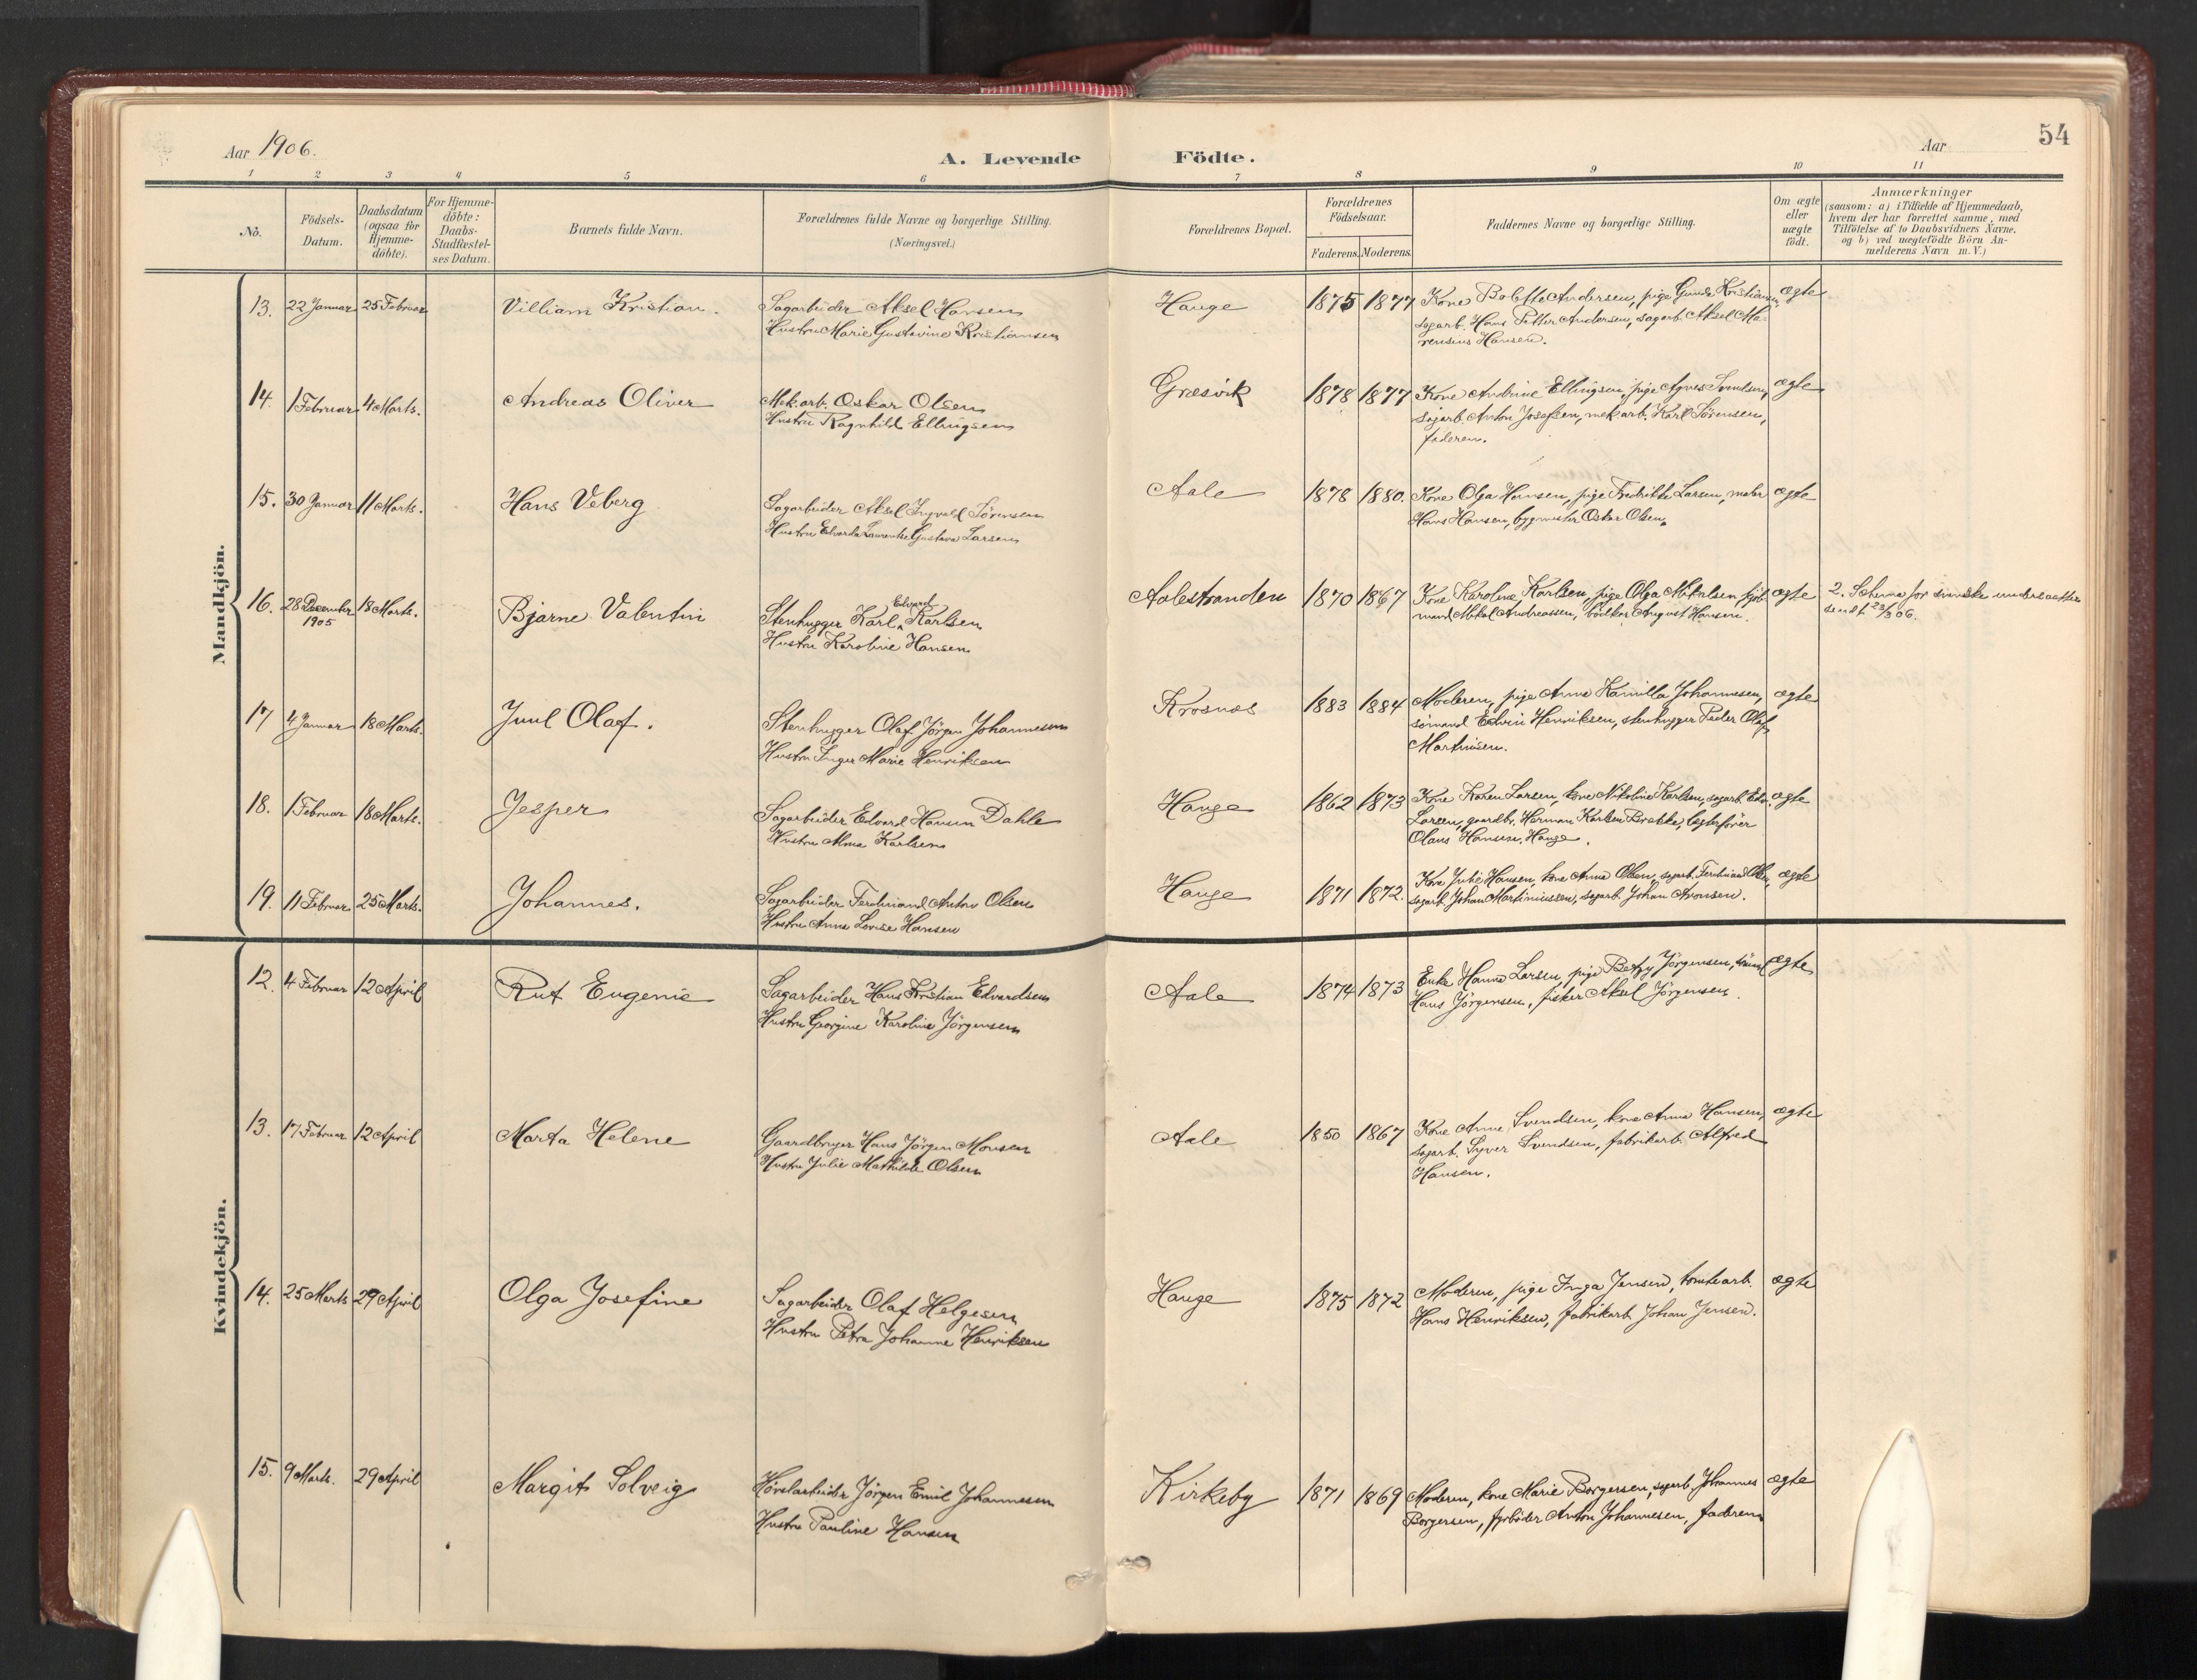 54
Aar 1906.
A. Levende Födte.
Aar
1 2 3 4 5 6 7 8 9 10 11
No.
Födsels-Datum.
Daabsdatum (ogsaa for Hjemme-döbte).
For Hjemme-döbte: Daabs-Stadfæstel-ses Datum.
Barnets fulde Navn.
Forældrenes fulde Navne og borgerlige Stilling.
(Næringsvei.)
Forældrenes Bopæl.
Forældrenes Födselsaar.
Faderens. Moderens.
Faddernes Navne og borgerlige Stilling.
Om ægte eller uægte födt.
Anmærkninger
(saasom: a) i Tilfælde af Hjemmedaab,
hvem der har forrettet samme, med
Tilföielse af to Daabsvidners Navne.
og b) ved uægtefödte Börn An-
melderens Navn m.V.)
Mandkjön.
13. 22 Januar 25 Februar Villiam Kristian. Sagarbeider Aksel Hansen Hauge 1875 1877 Kone Bolette Andersen, pige Gunda Kristiansen, ægte
Hustru Marie Gustavine Kristiansen sagarb. Hans Petter Andersen, sagarb. Aksel Ma-
rensius Hansen.
14. 1 Februar 4 Marts. Andreas Oliver Mek. arb. Oskar Olsen Græsvik 1878 1877 Kone Andrine Ellingsen, pige Agnes ægte
Hustru Ragnhild Ellingsen sagarb. Anton Josefsen, mek arb. Karl Sörensen,
faderen.
15. 30 Januar 11 Marts. Hans Veberg Sagarbeider Aksel Ingvald Sörensen Aale 1878 1880. Kone Olga Hansen, pige Fredrikke Larsen, maler ægte
Hustru Edvarda Laurentse Gustava Larsen Hans Hansen, bygmester Oskar Olsen.
16. 28 December 1905 18 Marts. Bjarne Valentin Stenhugger Karl Edvard Karlsen Aalestranden 1870 1867 Kone Karoline Karlsen, pige Olga Mikalsen kjöb- ægte 2. Schema for svenske undersaatter
Hustru Karoline Hansen mand Mikal Andreassen, bödker August Hansen. sendt 23/3 06.
17 4 Januar 18 Marts. Juul Olaf. Stenhugger Olaf Jörgen Johannesen Krosnæs 1883 1884 Moderen, pige Anna Kamilla Johannesen, ægte
Hustru Inger Marie Henriksen sömand Edvin Henriksen, stenhugger Peder Olaf
Martinsen.
18. 1 Februar 18 Marts. Jesper Sagarbeider Edvard Hansen Dahle Hauge 1862 1873 Kone Karen Larsen, kone Nikoline Karlsen, sagarb. Edv. ægte
Hustru Alma Karlsen Larsen, gaardbr. Herman Karlsen Brække, lægterförer
Olaus Hansen, Hauge.
19. 11 Februar 25 Marts. Johannes. Sagarbeider Ferdinand Anton Olsen Hauge 1871 1872. Kone Julie Hansen, kone Anna Olsen, sagarb. Ferdinand Olsen, ægte
Hustru Anna Lovise Hansen sagarb. Johan Martiniussen, sagarb. Johan Aronsen.
Kvindekjön.
12. 4 Februar 12 April Rut Eugenie Sagarbeider Hans Kristian Edvardsen Aale 1874 1873 Enke Hanna Larsen, pige Betzy Jörgensen, ægte
Hustru Georgine Karoline Jörgensen Hans Jörgensen, fisker Aksel Jörgensen.
13. 17 Februar 12 April Marta Helene Gaardbruger Hans Jörgen Monsen Aale 1850 1867 Kone Anne Svendsen, kone Anna Hansen, ægte
Hustru Julie Mathilde Olsen sagarb. Syver Svendsen, fabrikarb. Alfred
Hansen.
14. 25 Marts 29 April Olga Josefine Sagarbeider Olaf Helgesen Hauge 1875 1872 Moderen, pige Inga Jensen, tomtearb. ægte
Hustru Petra Johanne Henriksen Hans Henriksen, fabrikarb. Johan Jensen.
15. 9 Marts. 29 April Margit Solveig Hövelarbeider Jörgen Emil Johannesen Kirkeby 1871 1869 Moderen, kone Marie Borgersen, sagarb. Johannes ægte
Hustru Pauline Hansen Borgersen, fyrböder Anton Johannesen, faderen